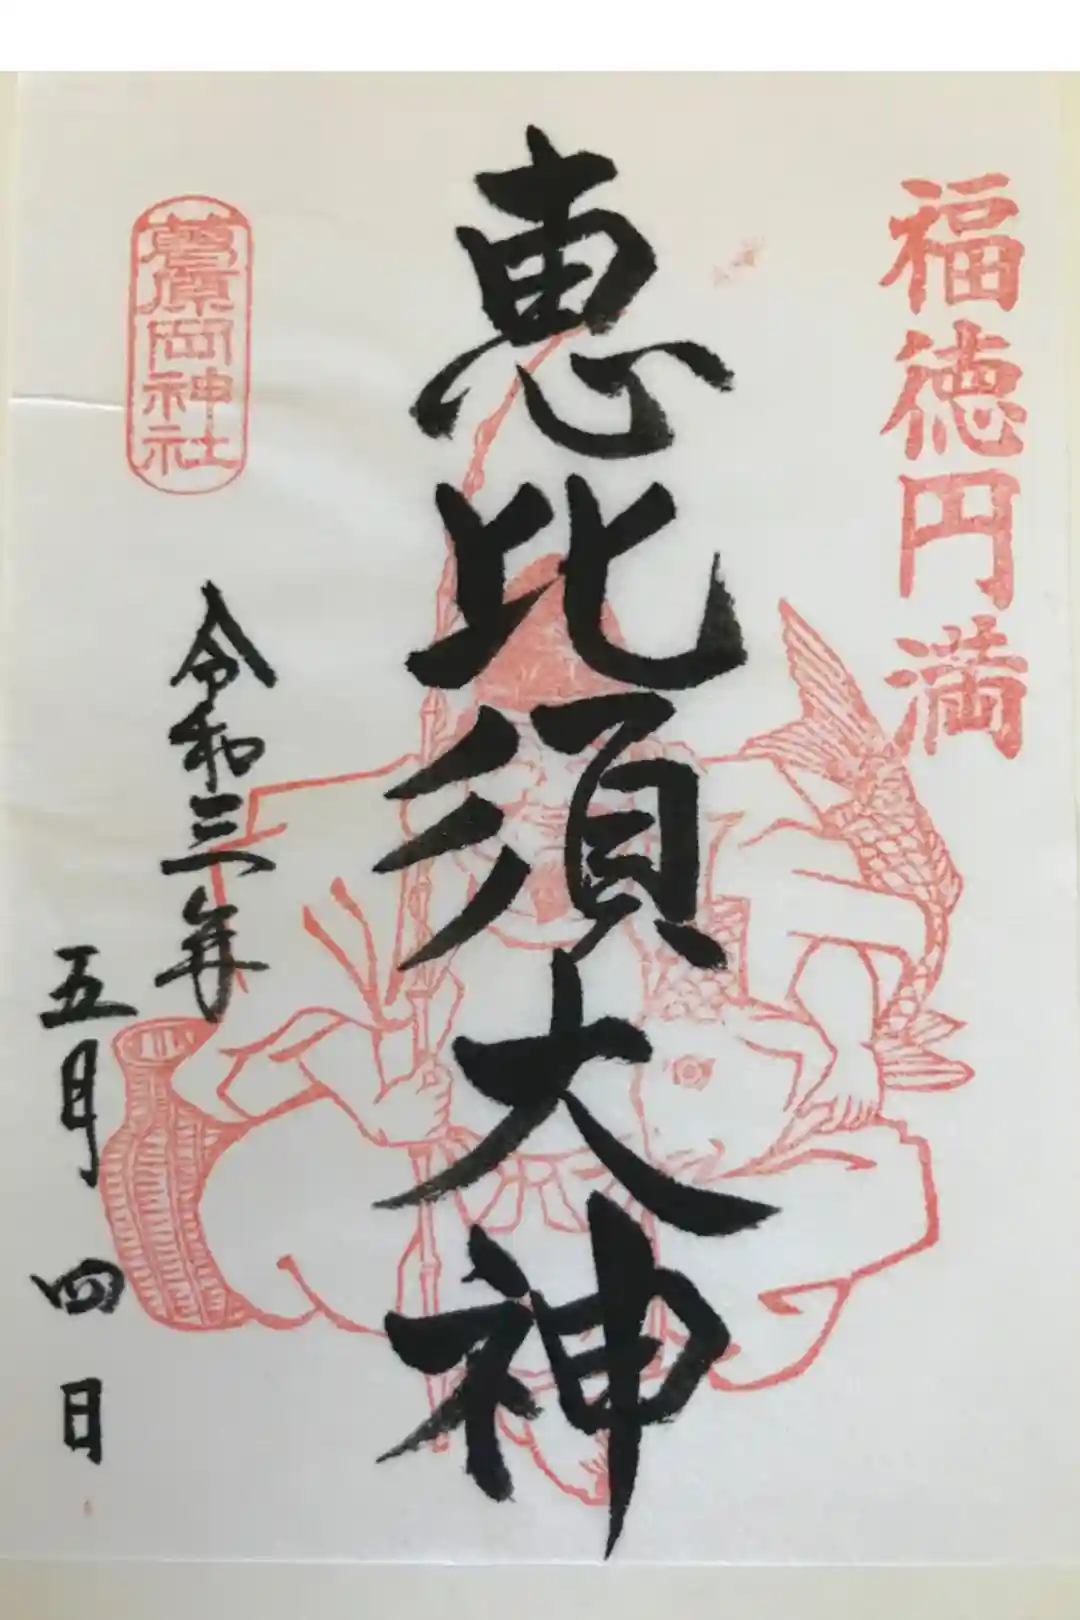 福徳円満
恵比須大神
葛原岡神社
令和三年
五月四日